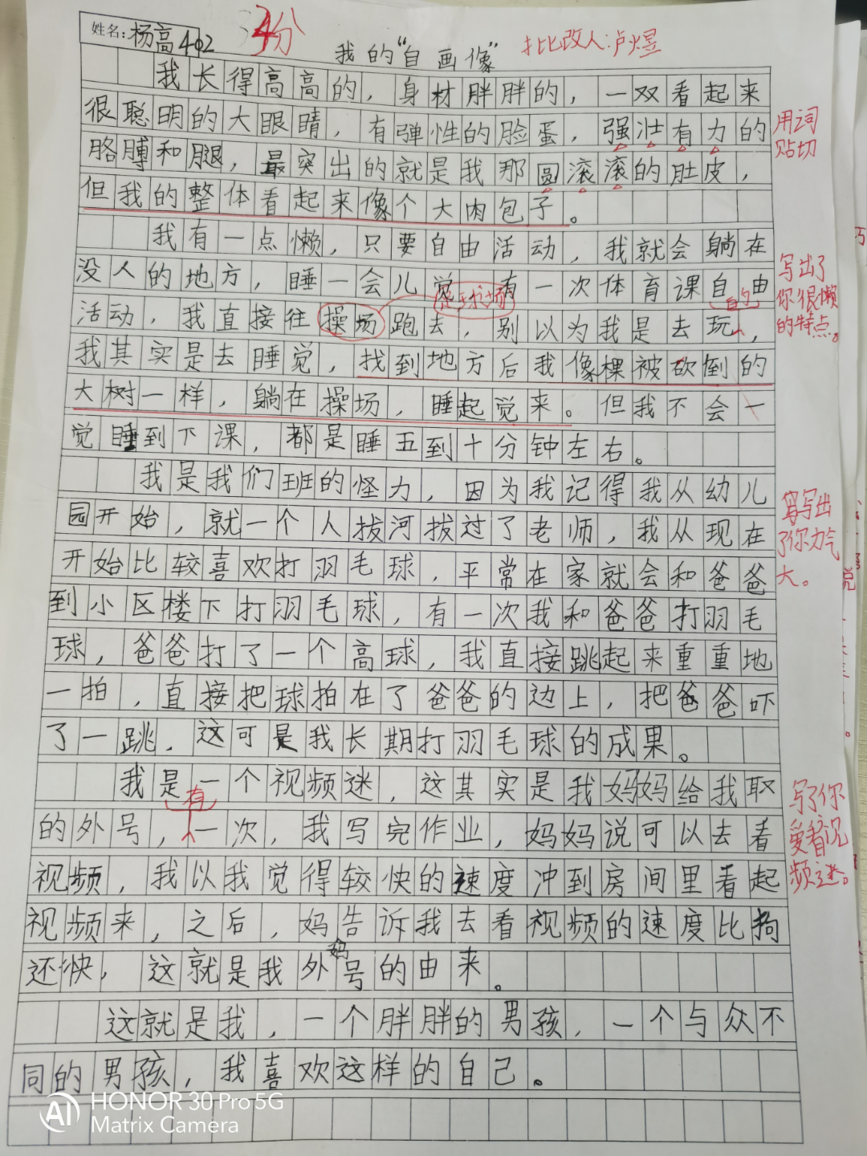 姓名:杨高402
34分
我的“自画像”
批改人:卢煜
我长得高高的，身材胖胖的，一双看起来
很聪明的大眼睛，有弹性的脸蛋，强壮有力的
胳膊和腿，最突出的就是我那圆滚滚的肚皮，
但我的整体看起来像个大肉包子。
用词
贴切
我有一点懒，只要自由活动，我就会躺在
没人的地方，睡一会儿觉。有一次体育课自由
活动，我直接往操场跑去，别以为我是去玩，
我其实是去睡觉，找到地方后我像棵被砍倒的
大树一样，躺在操场，睡起觉来。但我不会一
觉睡到下课，都是睡五到十分钟左右。
写出了
你很懒
的特点。
我是我们班的怪力，因为我记得我从幼儿
园开始，就一个人拔河拔过了老师，我从现在
开始比较喜欢打羽毛球，平常在家就会和爸爸
到小区楼下打羽毛球，有一次我和爸爸打羽毛
球，爸爸打了一个高球，我直接跳起来重重地
一拍，直接把球拍在了爸爸的边上，把爸爸吓
了一跳，这可是我长期打羽毛球的成果。
写出
了你力气
大。
我是一个视频迷，这其实是我妈妈给我取
的外号，有一次，我写完作业，妈妈说可以去看
视频，我以我觉得较快的速度冲到房间里看起
视频来，之后，妈妈告诉我去看视频的速度比狗
还快，这就是我外号的由来。
写了你
爱看视
频迷。
这就是我，一个胖胖的男孩，一个与众不
同的男孩，我喜欢这样的自己。
HONOR 30 Pro 5G
Matrix Camera